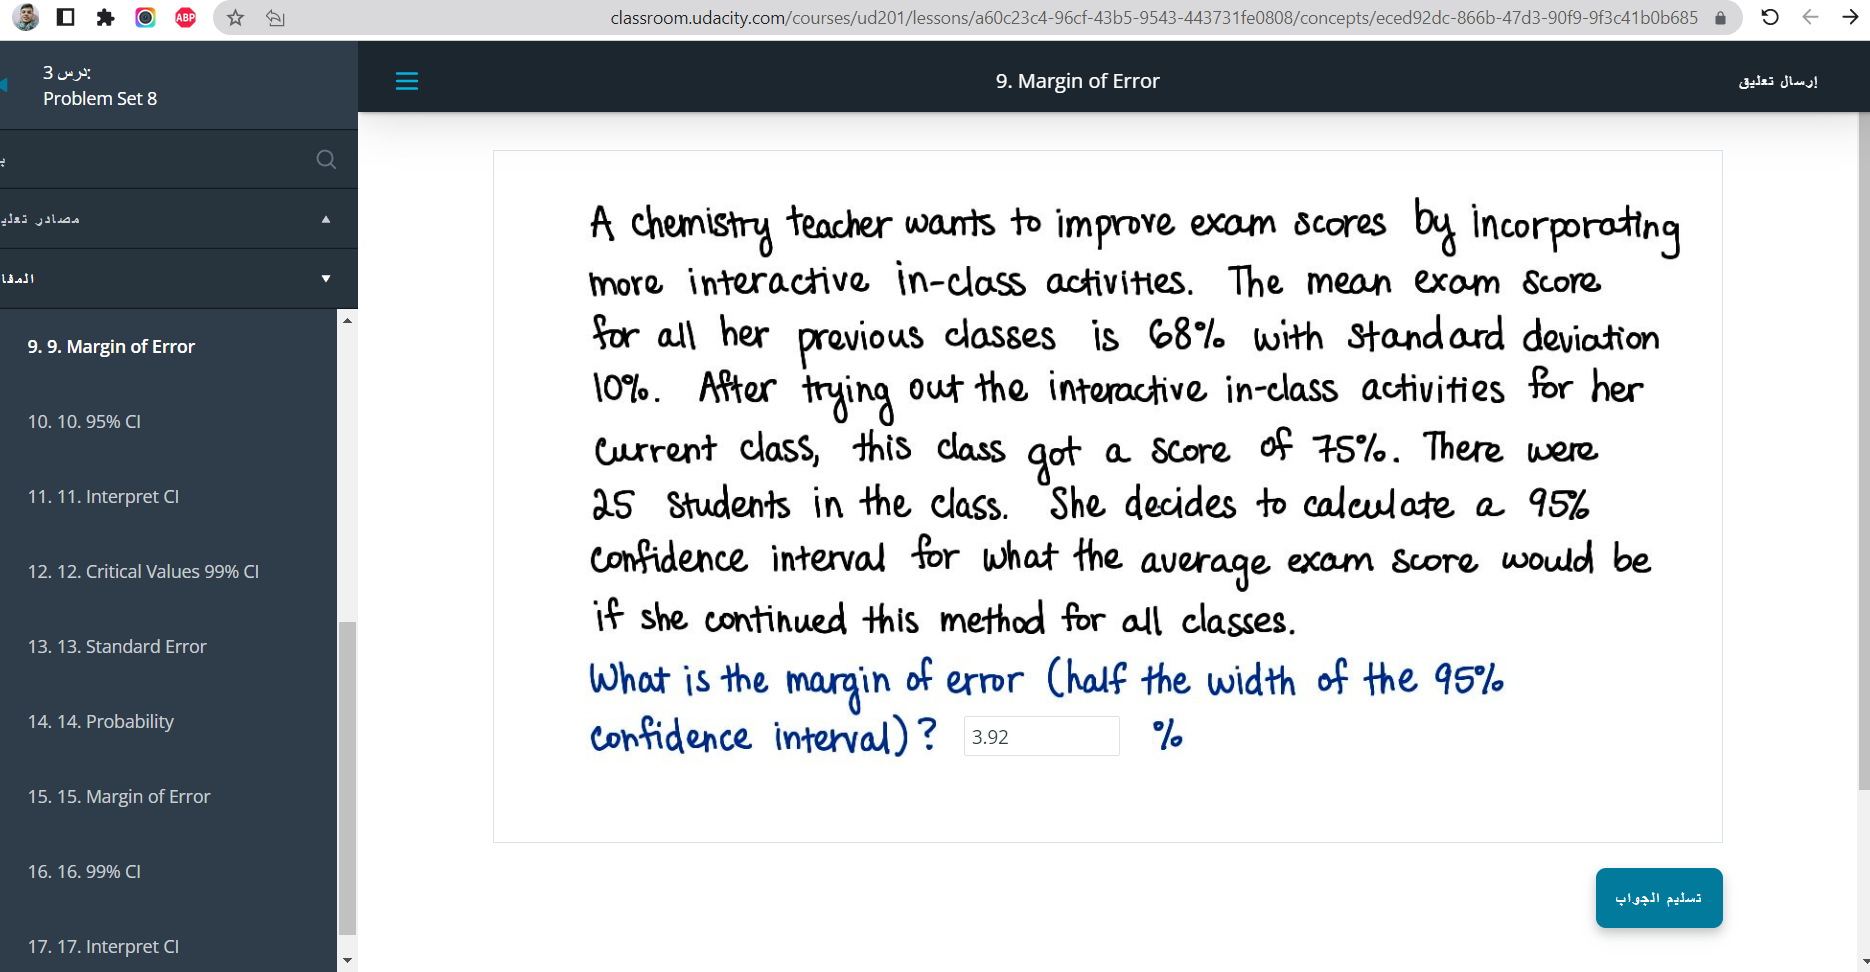 ABP
classroom.udacity.com/courses/ud201/lessons/a60c23c4-96cf-43b5-9543-443731fe0808/concepts/eced92dc-866b-47d3-90f9-9f3c41b0b685
درس 3:
Problem Set 8
9. Margin of Error
إرسال تعليق
مصادر تعلي
المفا
9. 9. Margin of Error
10. 10. 95% CI
11. 11. Interpret CI
12. 12. Critical Values 99% CI
13. 13. Standard Error
14. 14. Probability
15. 15. Margin of Error
16. 16. 99% CI
17. 17. Interpret CI
A chemistry teacher wants to improve exam scores by incorporating
more interactive in-class activities. The mean exam score
for all her previous classes is 68% with standard deviation
10%. After trying out the interactive in-class activities for her
current class, this class got a score of 75%. There were
25 students in the class. She decides to calculate a 95%
confidence interval for what the average exam score would be
if she continued this method for all classes.
What is the margin of error (half the width of the 95%
confidence interval)? 3.92 %
تسليم الجواب